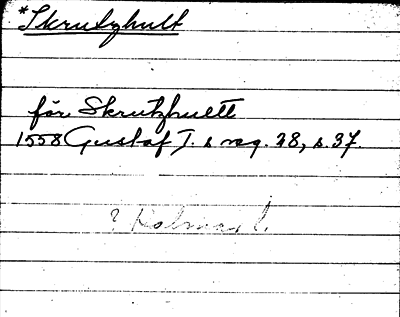 *Skrutzhult
för Skrutzhuett
1558 Gustaf I. s reg. 28, s. 37.
? Kalmar l.